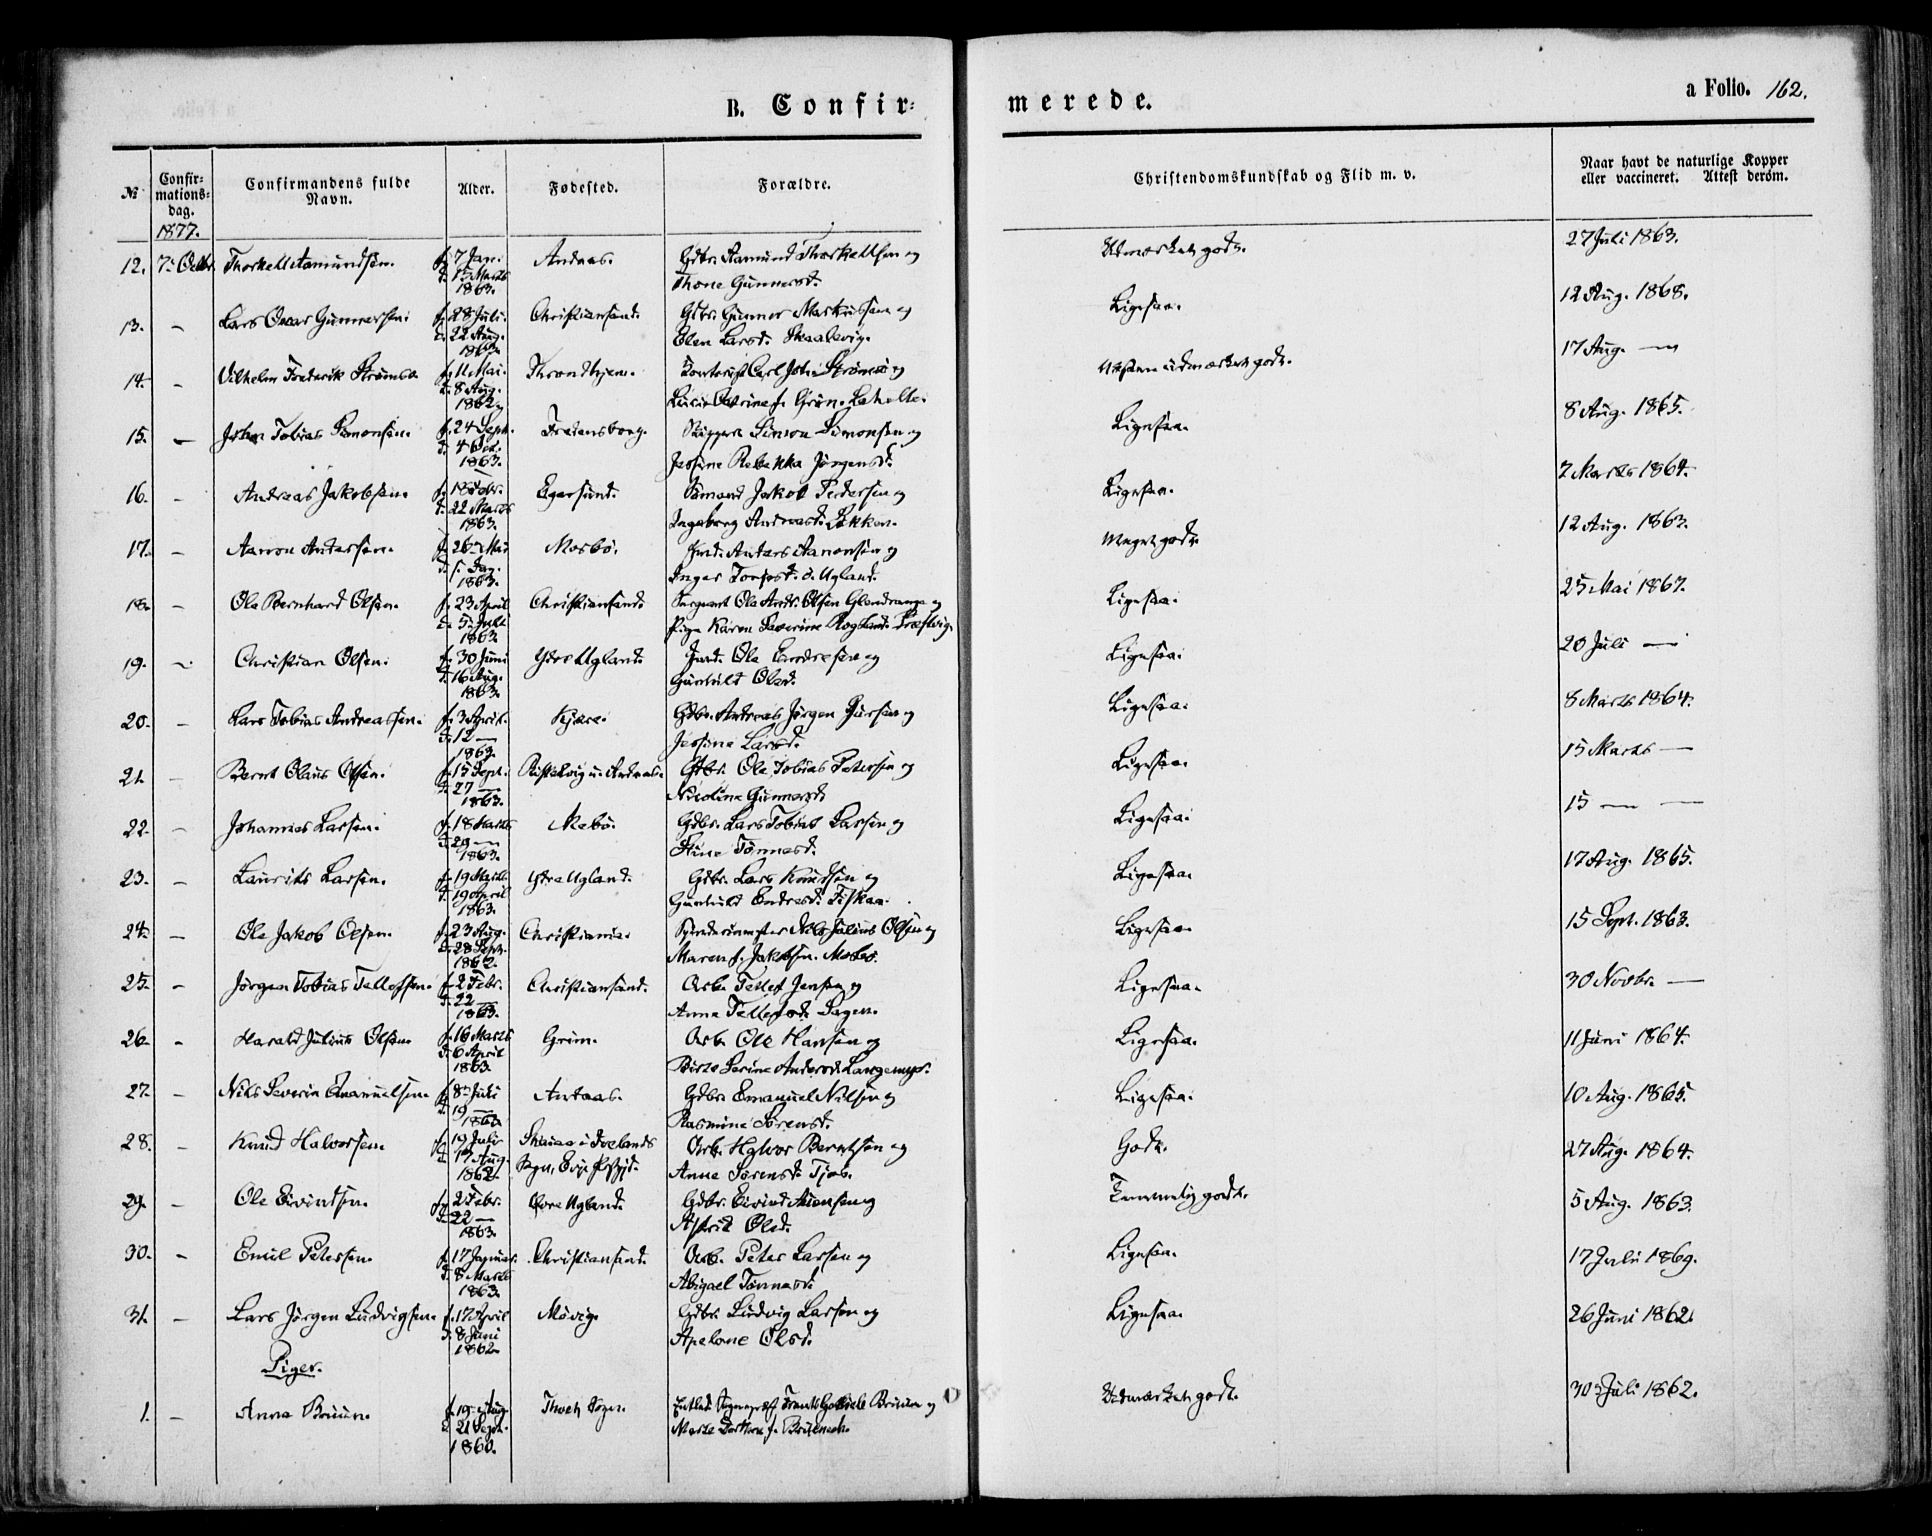 B. Confir-
merede.
a Folio. 162.
№
Confir-
mations-
dag.
1877.
Confirmandens fulde
Navn.
Alder.
Fødested.
Forældre.
Christendomskundskab og Flid m. v.
Naar havt de naturlige Kopper
eller vaccineret. Attest derom.
12. 7de Octbr. Thorkell Aamundsen. f. 7 Jan. Andaas. Gdbr. Aamund Thorkellsen og Udmærket godt. 27 Juli 1863.
d. 15 Marts Thone Gunnersd.
1863.
13. — Lars Oscar Gunnersen. f. 28 Juli. Christiansand. Gdbr. Gunner Markussen og Ligesaa. 12 Aug. 1868.
d. 22 Aug. Elen Larsd. Skaalevig.
1863.
14 — Vilhelm Frederik Strømsø f. 11 Mai. Throndhjem. Contorist Carl John Strømsø og Næsten udmærket godt. 17 Aug. —
d. 8 Aug.
1862
15. — John Tobias Simonsen. f. 24 Sept. Fredensborg. Skipper Simon Simonsen og Ligesaa. 8 Aug. 1865.
d. 4 Oct. Jessine Rebekka Jørgensd.
1863.
16. — Andreas Jakobsen. f. 18 Febr. Egersund. Sømand Jakob Pedersen og Ligesaa. 7 Marts 1864.
d. 22 Marts Ingeborg Andreasd. Løkken.
1863.
17. — Aanon Andersen. f. 26 Mai Mosbø. Inds. Anders Aanonsen og Meget godt. 12 Aug. 1863.
Inger Torjesd. ø. Ugland.
1863.
18. — Ole Bernhard Olsen. f. 23 April Christiansand. Sergeant Ole Andr. Olsen og Ligesaa. 25 Mai 1867.
d. 5 Juli Pige Karen Severine
1863.
19. — Christian Olsen. f. 30 Juni Ydre Ugland. Inds. Ole Endresen og Ligesaa. 20 Juli —
d. 16 Aug. Gunhild Olsd.
1863.
20. — Lars Tobias Andreassen. f. 3 April. Kjære. Gdbr. Andreas Jørgen og Ligesaa. 8 Marts 1864.
d. 12 — Jessine Larsd.
1863.
21. — Bernt Olaus Olsen. f. 15 Sept. Gdbr. Ole Tobias Petersen og Ligesaa. 15 Marts —
d. 27 — Nicoline Gunnersd.
1863.
22. — Johannes Larsen. f. 18 Marts Mebø. Gdbr. Lars Tobias Larsen og Ligesaa. 15 — —
d. 29 — Stine Tønnesd.
1863.
23. — Laurits Larsen. f. 19 Marts Ydre Ugland. Gdbr. Lars Knudsen og Ligesaa. 17 Aug. 1865.
d. 19 April Gunhild Endresd. Fiskaa.
1863.
24. — Ole Jakob Olsen. f. 23 Aug. Christiania. Nils Julius Olsen og Ligesaa. 15 Sept. 1863.
d. 28 Sept. Maren f. Jakobsen. Mosbø.
1862.
25. — Jørgen Tobias Tellefsen. f. 2 Febr. Christiansand. Arb. Tellef Jensen og Ligesaa. 30 Novbr. —
d. 22 — Anna Tellefsd. Sagen.
1863.
26. — Harald Julius Olsen f. 16 Marts Grim. Arb. Ole Hansen og Ligesaa. 11 Juni 1864.
d. 6 April Birte Serine Andersd. Langemyr.
1863.
27. — Nils Severin Emanuelsen. f. 8 Juli Andaas. Gdbr. Emanuel Nilsen og Ligesaa. 10 Aug. 1865.
d. 19 — Rasmine Sørensd.
1863.
28. — Knud Halvorsen. f. 19 Juli i Ivelands Arb. Halvor Berntsen og Godt. 27 Aug. 1864.
d. 17 Aug. Sogn, Evje Pgjd. Anne Sørensd. Tjøs.
1862.
29. — Ole Eivindsen. f. 2 Febr. Øvre Ugland. Gdbr. Eivind og Temmelig godt. 5 Aug. 1863.
d. 22 — Astrid Olsd.
1863.
30. — Emil Petersen. f. 17 Januar. Christiansand. Arb. Peter Larsen og Ligesaa. 17 Juli 1869.
d. 8 Marts Abigael Tønnesd.
1863.
31. — Lars Jørgen Ludvigsen. f. 17 April Møvig. Gdbr. Ludvig Larsen og Ligesaa. 26 Juni 1862.
d. 8 Juni Apelone Olsd.
1862.
Piger.
1. — Anna Bruun. f. 19 Aug. Thveit Sogn. Bruun og Udmærket godt. 30 Juli 1862.
d. 21 Sept.
1860.